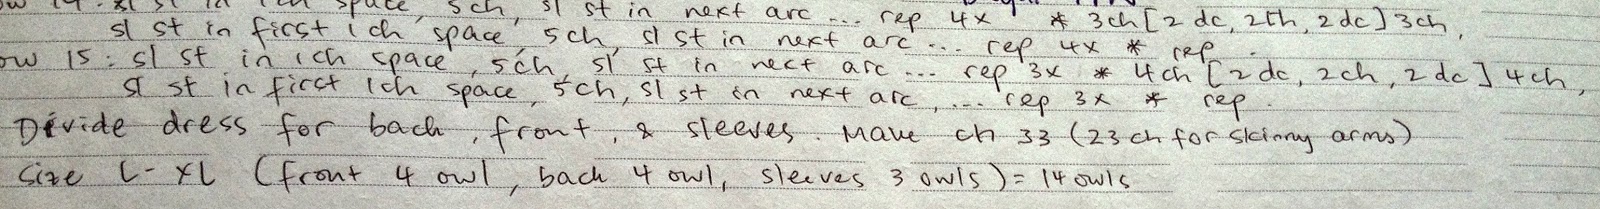 sl st in 1ch space, 5ch, sl st in next arc ... rep 4x * 3ch [2 dc, 2ch, 2 dc] 3ch,
sl st in first 1 ch space, 5ch, sl st in next arc ... rep 4x * rep.
ow 15: sl st in 1ch space, 5ch, sl st in next arc ... rep 3x * 4ch [2 dc, 2ch, 2 dc] 4ch,
sl st in first 1ch space, 5ch, sl st in next arc, ... rep 3x * rep.
Divide dress for back, front, & sleeves. Make ch 33 (23 ch for skinny arms)
Size L-XL (front 4 owl, back 4 owl, sleeves 3 owls) = 14 owls